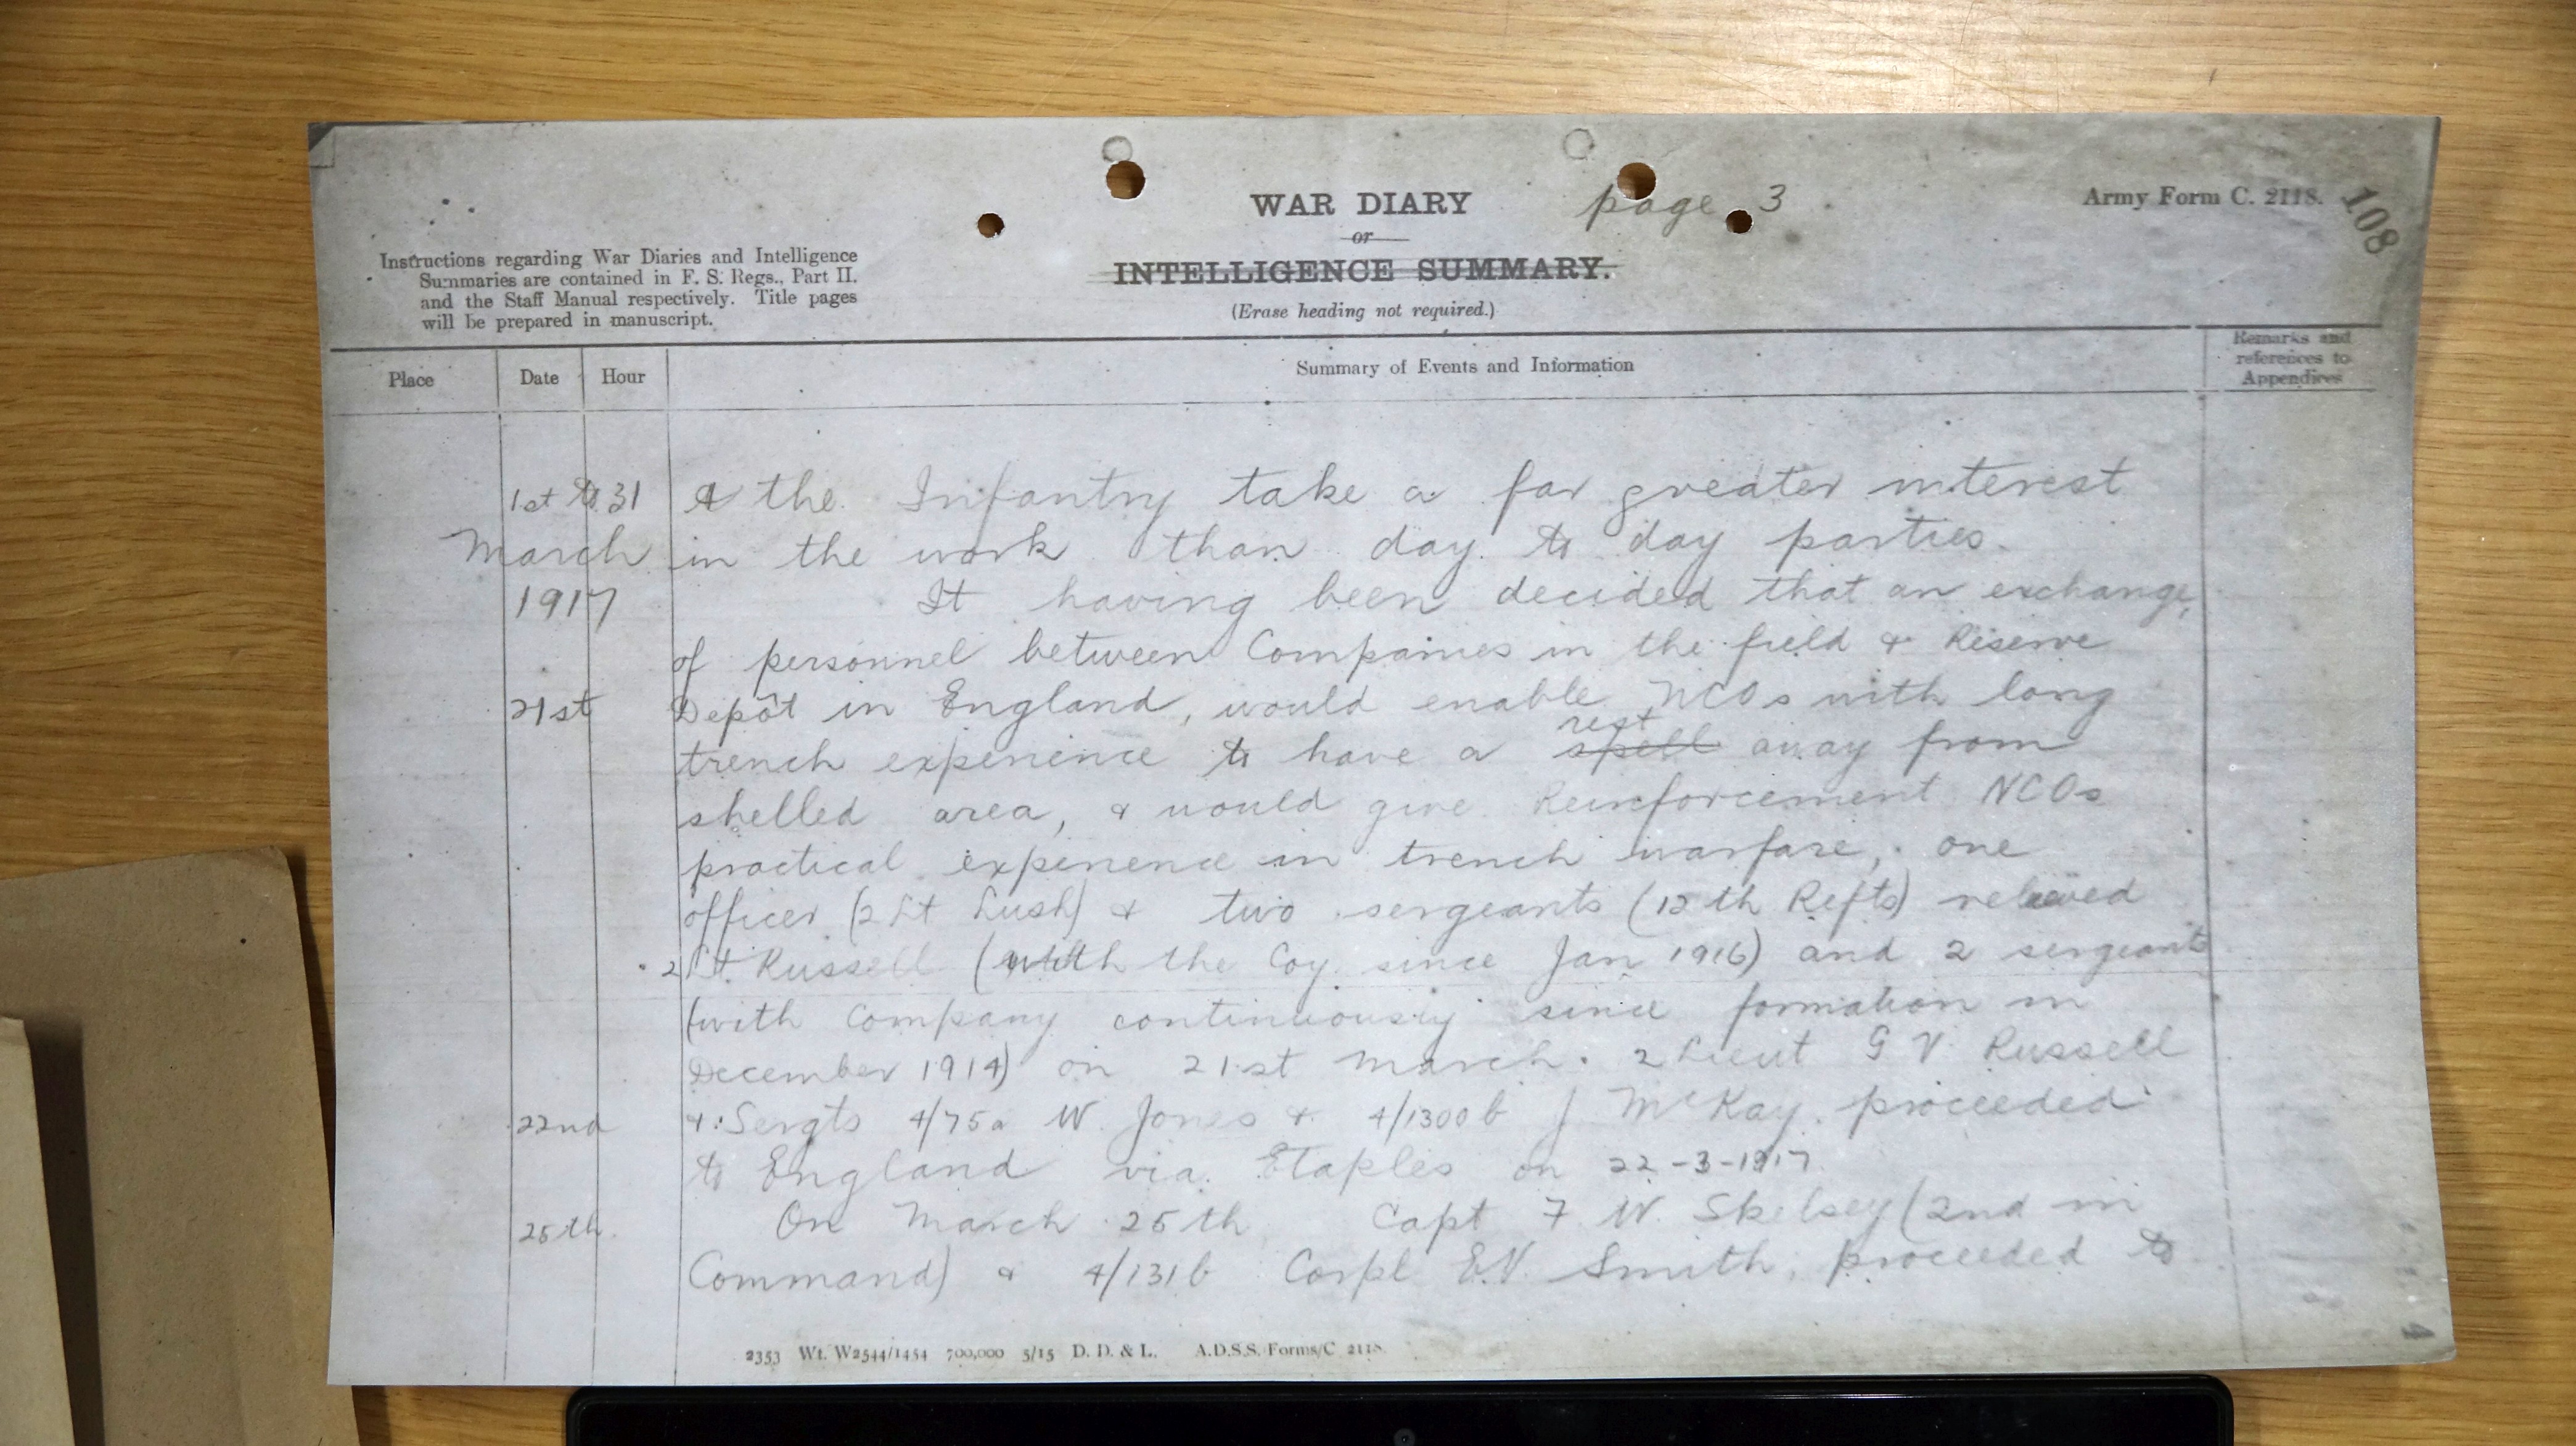 WAR DIARY
page 3.
Army Form C. 2118.
108
or
INTELLIGENCE SUMMARY.
(Erase heading not required.)
Instructions regarding War Diaries and Intelligence
Summaries are contained in F. S. Regs., Part II.
and the Staff Manual respectively. Title pages
will be prepared in manuscript.
Place Date Hour Summary of Events and Information Remarks and references to Appendices
1st to 31 & the Infantry take a far greater interest
March in the work than day to day parties.
1917 It having been decided that an exchange,
of personnel between Companies in the field & Reserve
21st Depôt in England, would enable NCOs with long
rest
trench experience to have a spell away from
shelled area, & would give Reinforcement NCOs
practical experience in trench warfare, one
officer (2 Lt Lush) & two sergeants (12th Refts) relieved
2 Lt. Russell (with the Coy since Jan 1916) and 2 sergeants
(with Company continuously since formation in
December 1914) on 21st March. 2 Lieut G V Russell
22nd &: Sergts 4/75a W. Jones & 4/1300b J McKay proceeded
to England via Etaples on 22-3-1917
25th. On March 25th Capt F W. Skelsey (2nd in
Command) & 4/131b Corpl E.V. Smith, proceeded to
2353 Wt. W2544/1454 700,000 5/15 D. D. & L. A.D.S.S./Forms/C 2118.